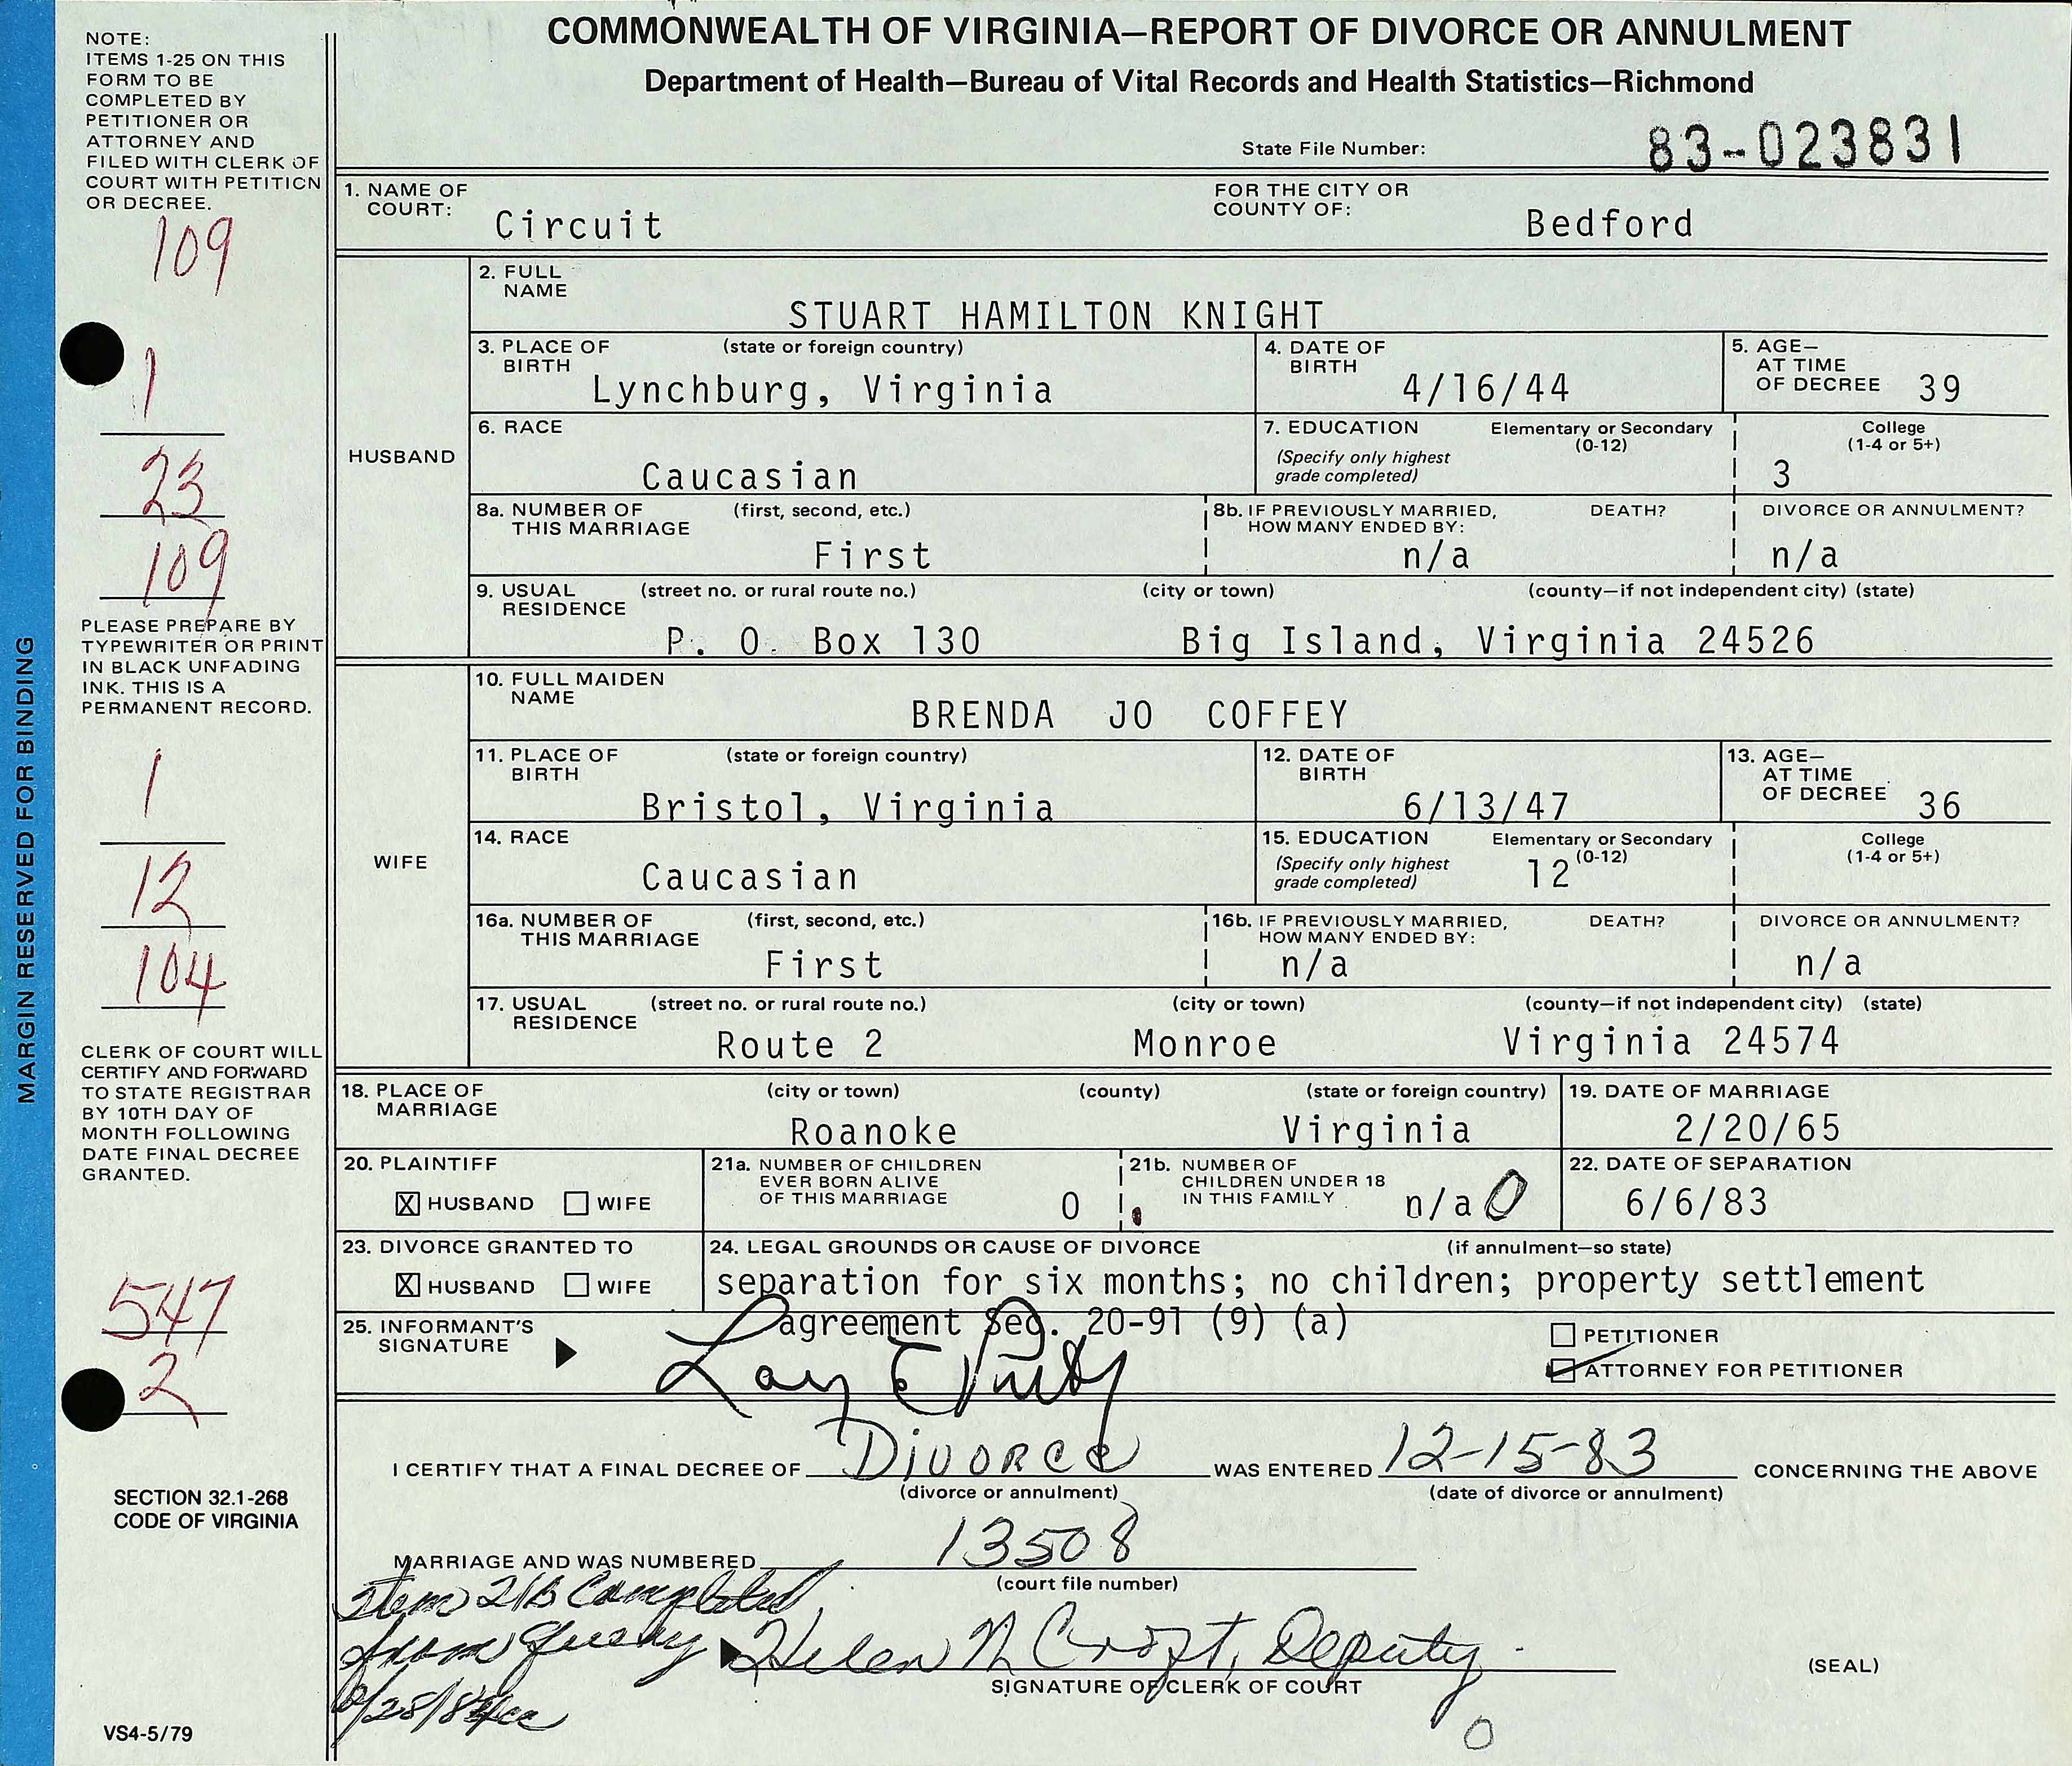 COMMONWEALTH OF VIRGINIA—REPORT OF DIVORCE OR ANNULMENT
Department of Health—Bureau of Vital Records and Health Statistics—Richmond
State File Number: 83-023831
MARGIN RESERVED FOR BINDING
NOTE:
ITEMS 1-25 ON THIS
FORM TO BE
COMPLETED BY
PETITIONER OR
ATTORNEY AND
FILED WITH CLERK OF
COURT WITH PETITION
OR DECREE.
109
1
23
109
PLEASE PREPARE BY
TYPEWRITER OR PRINT
IN BLACK UNFADING
INK. THIS IS A
PERMANENT RECORD.
1
12
104
CLERK OF COURT WILL
CERTIFY AND FORWARD
TO STATE REGISTRAR
BY 10TH DAY OF
MONTH FOLLOWING
DATE FINAL DECREE
GRANTED.
547
2
SECTION 32.1-268
CODE OF VIRGINIA
VS4-5/79
1. NAME OF COURT: Circuit FOR THE CITY OR COUNTY OF: Bedford
HUSBAND
2. FULL NAME
STUART HAMILTON KNIGHT
3. PLACE OF BIRTH (state or foreign country) 4. DATE OF BIRTH 5. AGE— AT TIME OF DECREE
Lynchburg, Virginia 4/16/44 39
6. RACE 7. EDUCATION (Specify only highest grade completed) Elementary or Secondary (0-12) College (1-4 or 5+)
Caucasian 3
8a. NUMBER OF THIS MARRIAGE (first, second, etc.) 8b. IF PREVIOUSLY MARRIED, HOW MANY ENDED BY: DEATH? DIVORCE OR ANNULMENT?
First n/a n/a
9. USUAL RESIDENCE (street no. or rural route no.) (city or town) (county—if not independent city) (state)
P. O. Box 130 Big Island, Virginia 24526
WIFE
10. FULL MAIDEN NAME
BRENDA JO COFFEY
11. PLACE OF BIRTH (state or foreign country) 12. DATE OF BIRTH 13. AGE— AT TIME OF DECREE
Bristol, Virginia 6/13/47 36
14. RACE 15. EDUCATION (Specify only highest grade completed) Elementary or Secondary (0-12) College (1-4 or 5+)
Caucasian 12
16a. NUMBER OF THIS MARRIAGE (first, second, etc.) 16b. IF PREVIOUSLY MARRIED, HOW MANY ENDED BY: DEATH? DIVORCE OR ANNULMENT?
First n/a n/a
17. USUAL RESIDENCE (street no. or rural route no.) (city or town) (county—if not independent city) (state)
Route 2 Monroe Virginia 24574
18. PLACE OF MARRIAGE (city or town) (county) (state or foreign country) 19. DATE OF MARRIAGE
Roanoke Virginia 2/20/65
20. PLAINTIFF 21a. NUMBER OF CHILDREN EVER BORN ALIVE OF THIS MARRIAGE 21b. NUMBER OF CHILDREN UNDER 18 IN THIS FAMILY 22. DATE OF SEPARATION
X HUSBAND WIFE 0 n/a 0 6/6/83
23. DIVORCE GRANTED TO 24. LEGAL GROUNDS OR CAUSE OF DIVORCE (if annulment—so state)
X HUSBAND WIFE separation for six months; no children; property settlement
agreement Sec. 20-91 (9) (a)
25. INFORMANT'S SIGNATURE
PETITIONER
ATTORNEY FOR PETITIONER
I CERTIFY THAT A FINAL DECREE OF Divorce WAS ENTERED 12-15-83 CONCERNING THE ABOVE
(divorce or annulment) (date of divorce or annulment)
MARRIAGE AND WAS NUMBERED 13508
(court file number)
Item 21B Completed
from Query
Helen N Croft, Deputy
SIGNATURE OF CLERK OF COURT (SEAL)
0